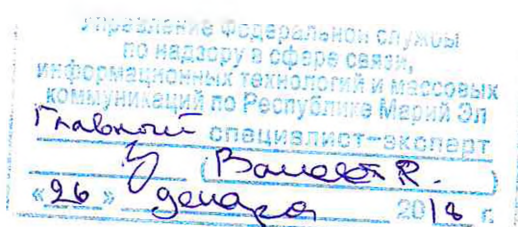 Управление Федеральной службы
по надзору в сфере связи,
информационных технологий и массовых
коммуникаций по Республике Марий Эл
Главный специалист-эксперт
«26» 2018 г.